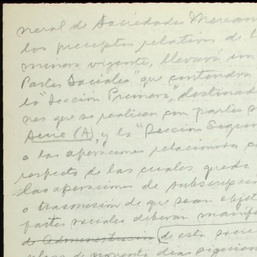 neral de Sociedades Mercan
los preceptos relativos de l
menos vigente, llevará un
Partes Sociales" que contendrá
la "Sección Primera", destinada
nes que se realicen con partes
Serie (A), y la "Sección Segun
a las operaciones relacionadas co
respecto de las cuales quede
las operaciones de subscripción
o transmisión de que sean objeto
partes sociales deberán manife
de Administración de esta socie
plazo de noventa días siguien